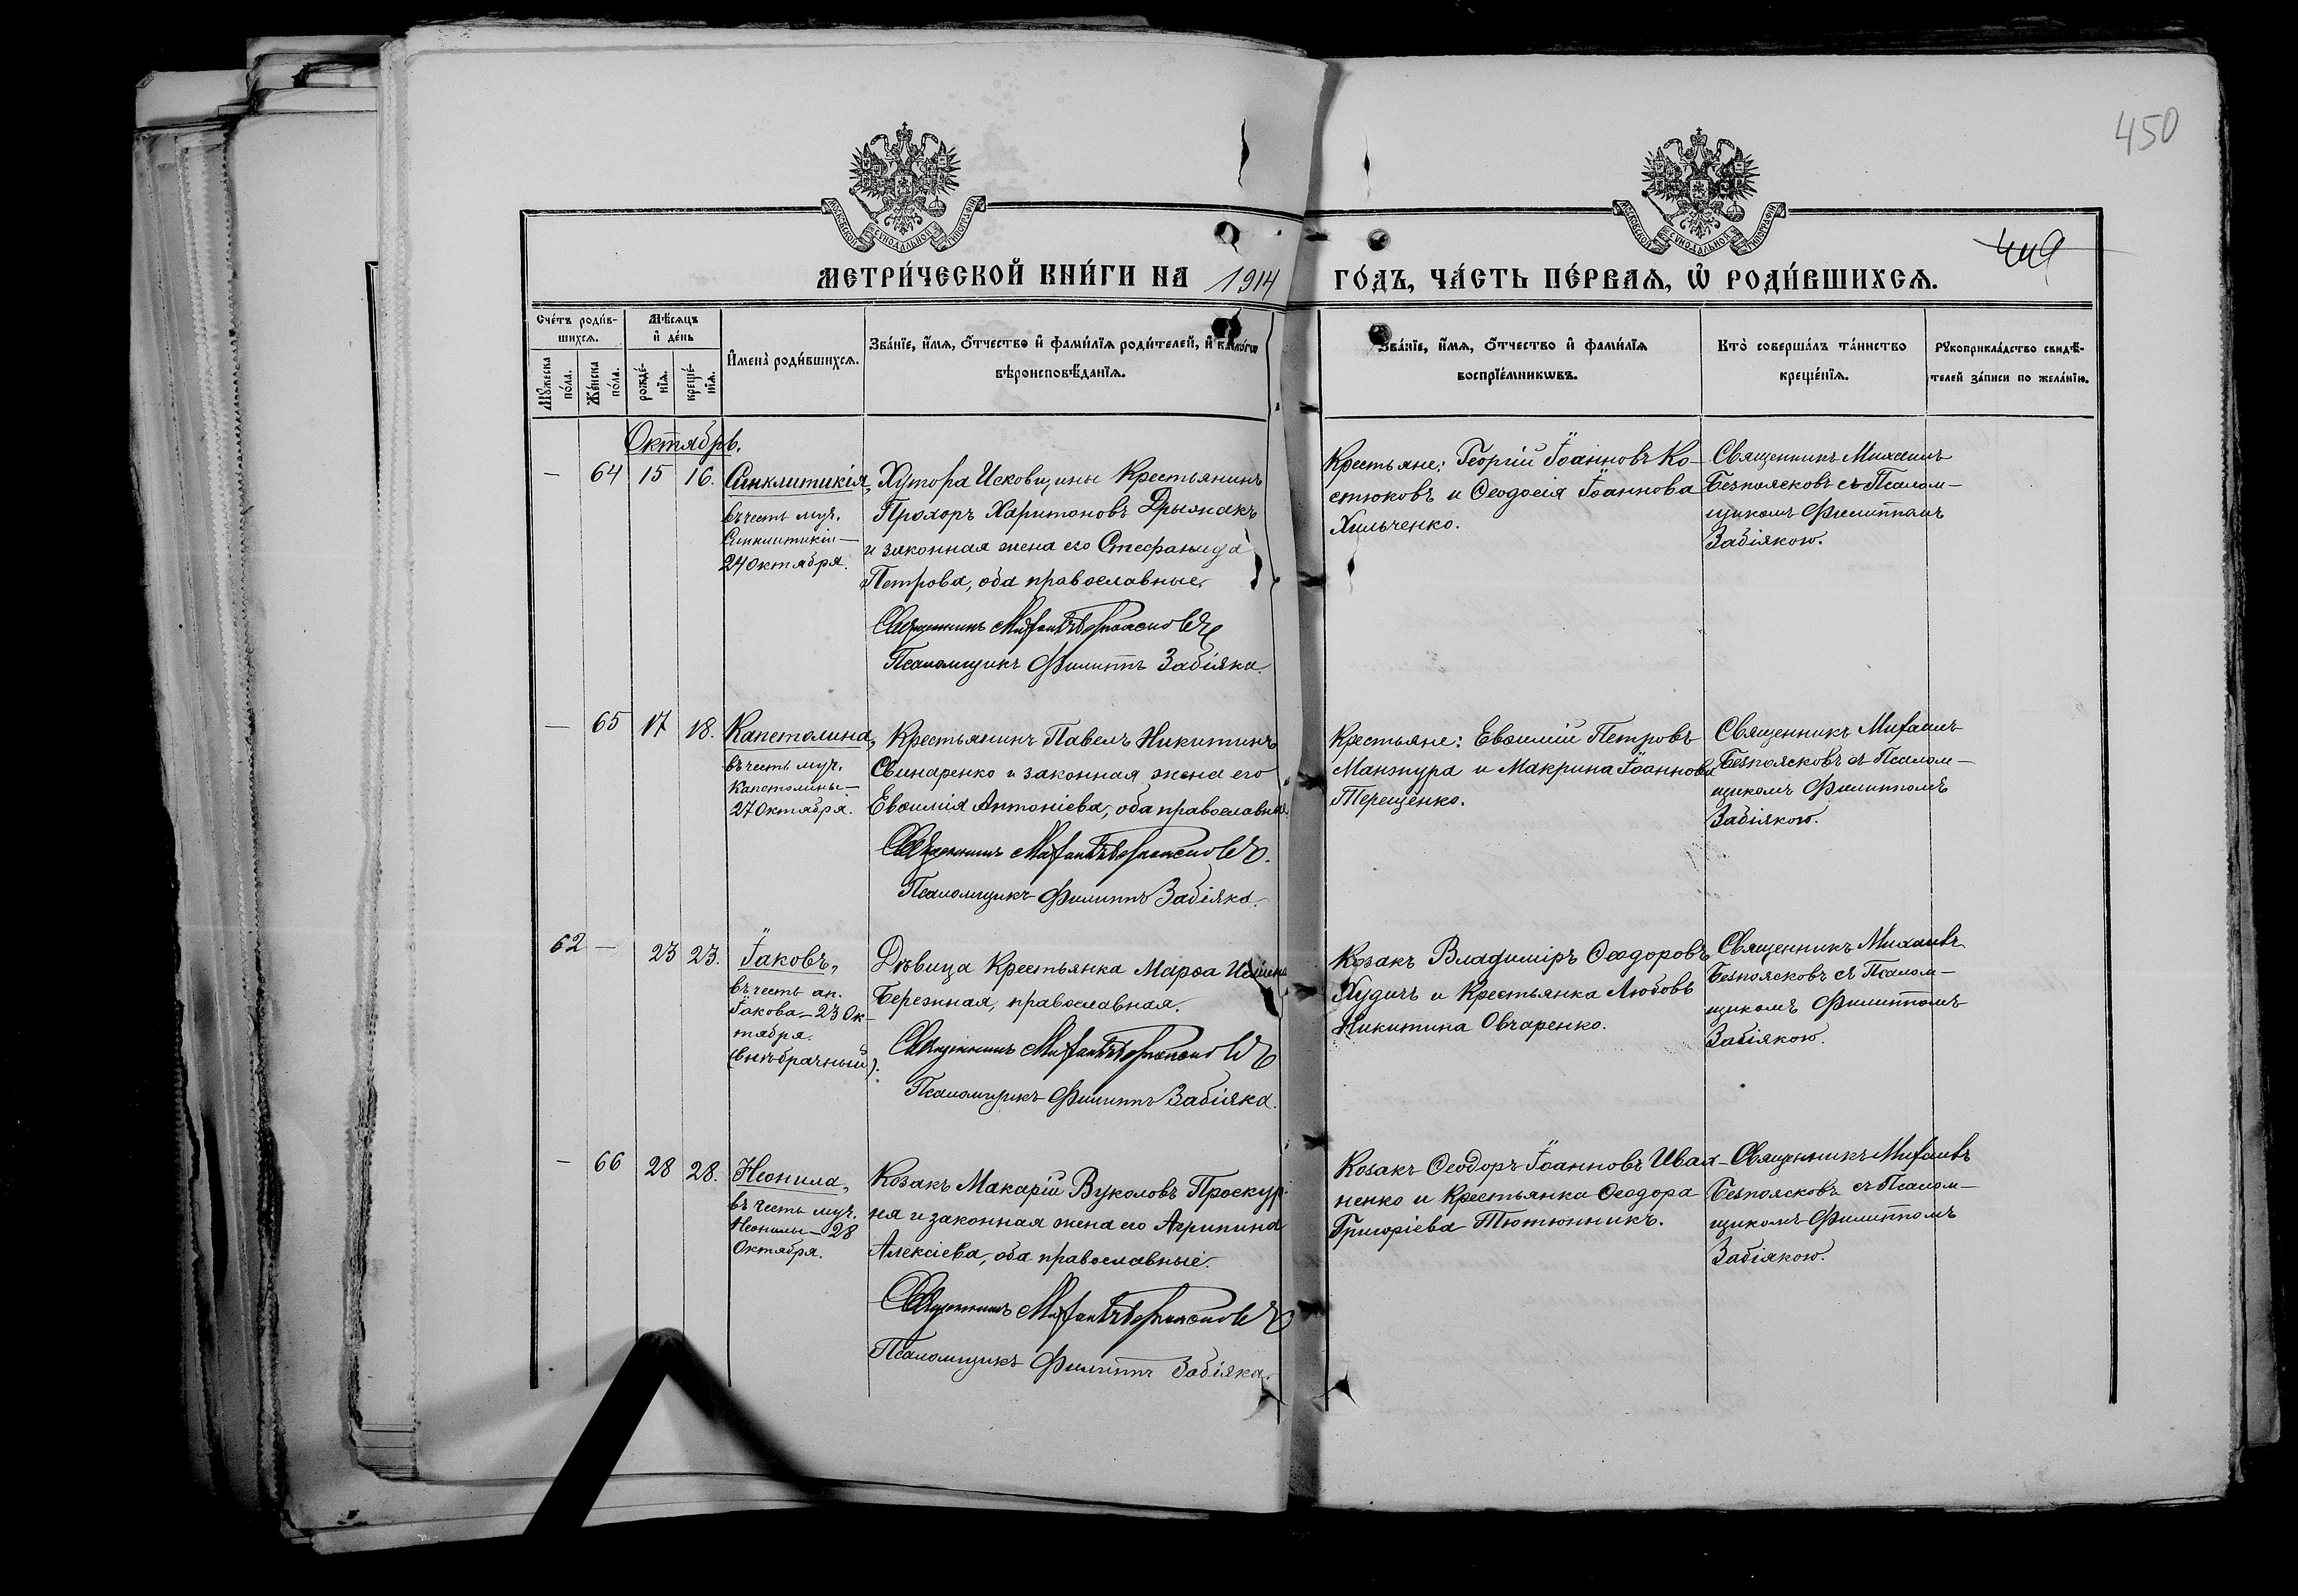 450
449
МЕТРИ́ЧЕСКОЙ КНИ́ГИ НА 1914 ГО́ДЪ, ЧА́СТЬ ПЕ́РВАЯ, Ѡ҆ РОДИ́ВШИХСЯ.
Сче́тъ роди́в-
шихся.
Мѣ́сяцъ
и҆ де́нь
Му́жеска
по́ла.
Же́нска
по́ла.
рожде́-
нїя.
креще́-
нїя.
И҆мена̀ роди́вшихся.
Зва́нїе, и҆́мя, о҆́тчество и҆ фами́лїя роди́телей, и҆ како́гѡ
вѣроисповѣ́данїя.
Зва́нїе, и҆́мя, о҆́тчество и҆ фами́лїя
воспрїе́мникѡвъ.
Кто̀ соверша́лъ та́инство
креще́нїя.
Рꙋкоприкла́дство свидѣ́-
телей за́писи по жела́нїю.
Октябрь.
— 64 15 16.
Синклитикія,
въ честь муч.
Синклитикіи —
24 Октября.
Хутора Исковщины Крестьянинъ
Прохоръ Харитоновъ Дрыжакъ
и законная жена его Стефанида
Петрова, оба православные.
Священникъ Михаилъ Безпоясковъ
Псаломщикъ Филиппъ Забіяка.
Крестьяне: Георгій Іоанновъ Ко-
стюковъ и Ѳеодосія Іоаннова
Хильченко.
Священникъ Михаилъ
Безпоясковъ съ Псалом-
щикомъ Филиппомъ
Забіякою.
— 65 17 18.
Капетолина,
въ честь муч.
Капетолины —
27 Октября.
Крестьянинъ Павелъ Никитинъ
Свинаренко и законная жена его
Евѳимія Антоніева, оба православные.
Священникъ Михаилъ Безпоясковъ.
Псаломщикъ Филиппъ Забіяка.
Крестьяне: Евѳимій Петровъ
Манжура и Макрина Іоаннова
Терещенко.
Священникъ Михаилъ
Безпоясковъ съ Псалом-
щикомъ Филиппомъ
Забіякою.
62 — 23 23.
Іаковъ,
въ честь ап.
Іакова — 23 Ок-
тября.
(внѣбрачный).
Дѣвица Крестьянка Марѳа
Бережная, православная.
Священникъ Михаилъ Безпоясковъ
Псаломщикъ Филиппъ Забіяка.
Козакъ Владиміръ Ѳеодоровъ
Худичъ и Крестьянка Любовь
Никитина Овчаренко.
Священникъ Михаилъ
Безпоясковъ съ Псалом-
щикомъ Филиппомъ
Забіякою.
— 66 28 28.
Неонила,
въ честь муч.
Неонилы — 28
Октября.
Козакъ Макарій Вуколовъ Проскур-
ня и законная жена его Агрипина
Алексіева, оба православные.
Священникъ Михаилъ Безпоясковъ
Псаломщикъ Филиппъ Забіяка.
Козакъ Ѳеодоръ Іоанновъ Ивах-
ненко и Крестьянка Ѳеодора
Григоріева Тютюнникъ.
Священникъ Михаилъ
Безпоясковъ съ Псалом-
щикомъ Филиппомъ
Забіякою.